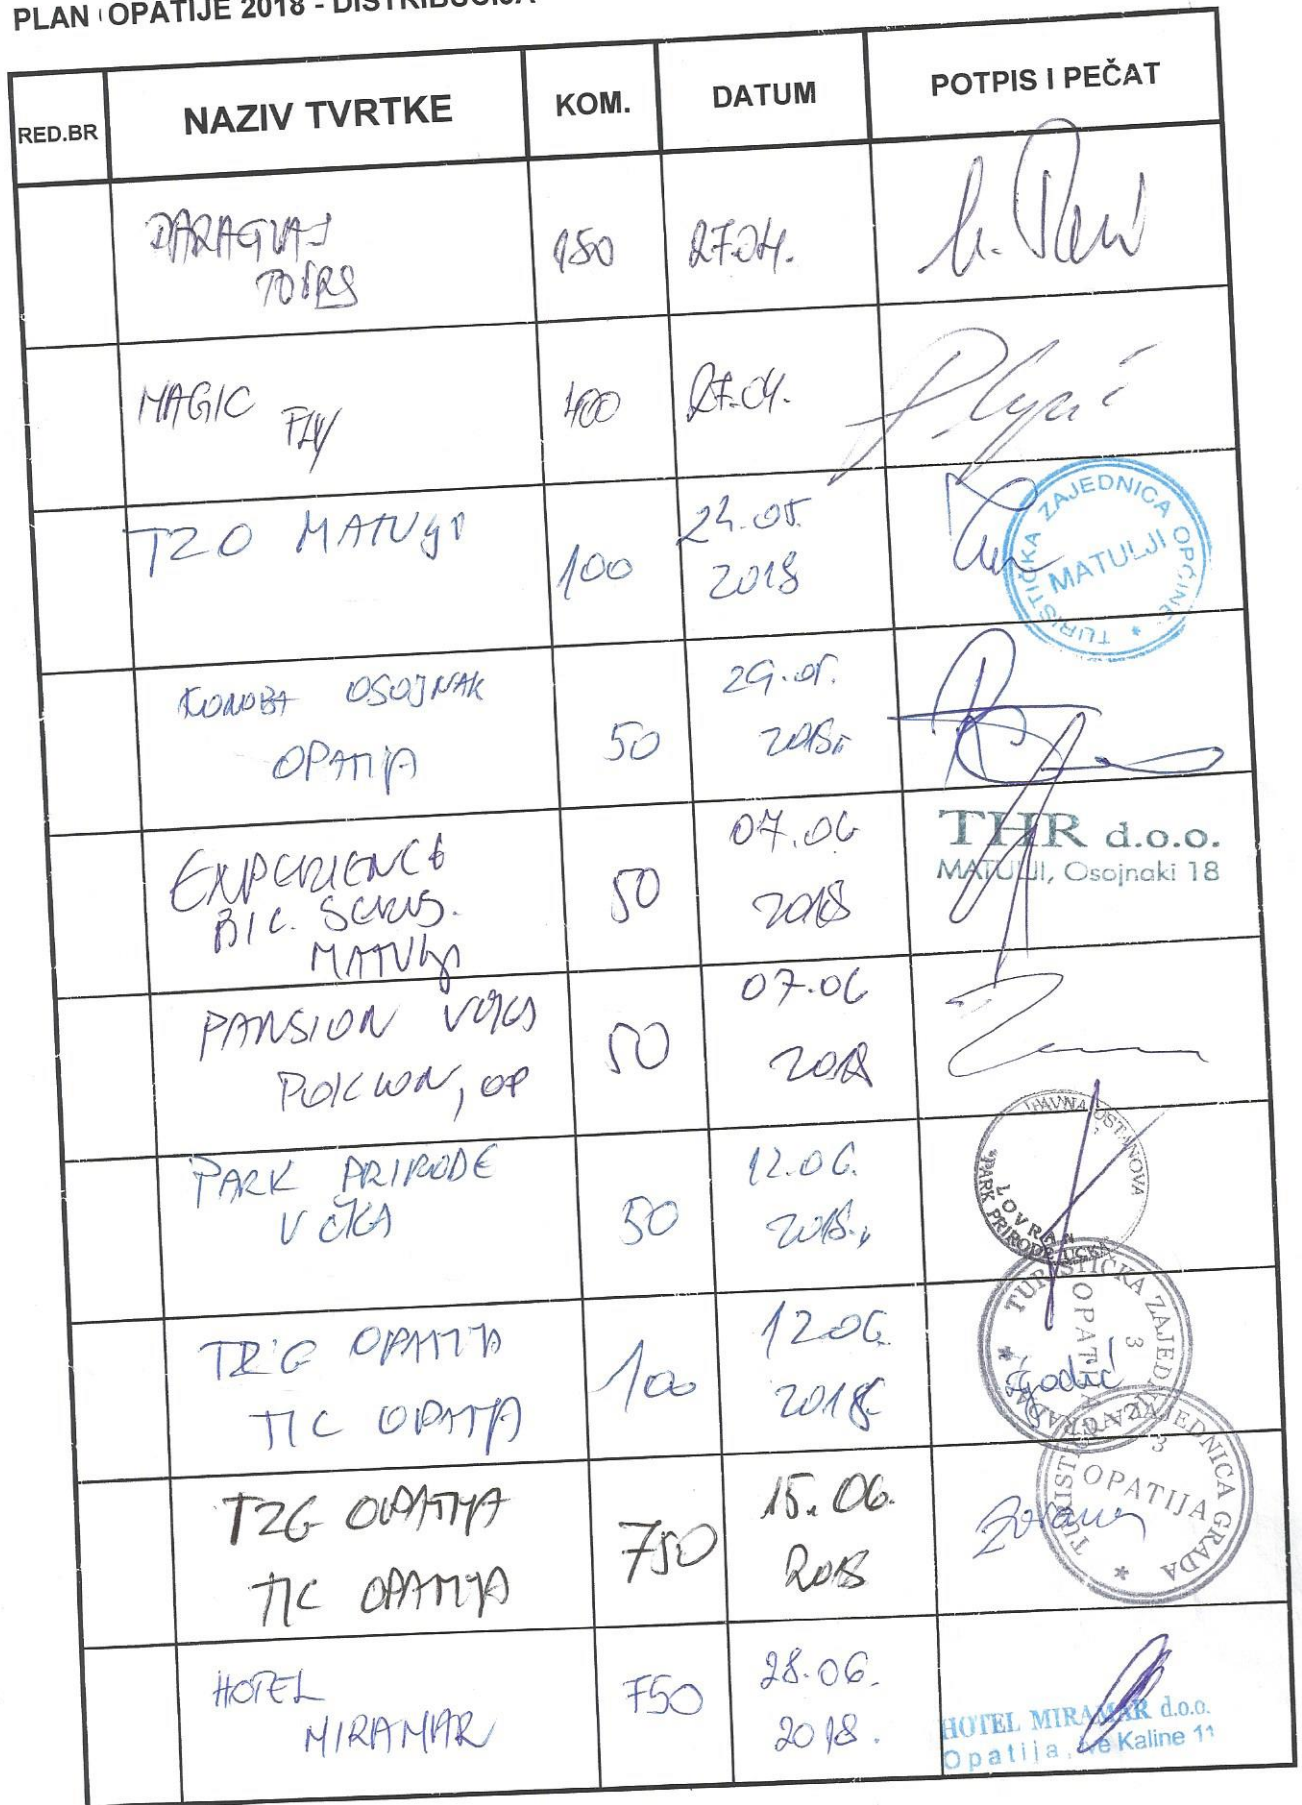 PLAN OPATIJE 2018 - DISTRIBUCIJA
RED.BR NAZIV TVRTKE KOM. DATUM POTPIS I PEČAT
TOURS
150 27.04.
MAGIC FLY 400 27.04.
TZO MATULJI 100 24.05. 2018
TURISTIČKA ZAJEDNICA OPĆINE * MATULJI
KONOBA OSOJNAK
OPATIJA 50 29.05. 2018.
EXPERIENCE
BIC. SERVIS.
MATULJI 50 07.06 2018
THR d.o.o.
MATULJI, Osojnaki 18
PANSION UČKA
POKLON, OP 50 07.06 2018
PARK PRIRODE
UČKA 50 12.06. 2018.
JAVNA USTANOVA
"PARK PRIRODE UČKA"
LOVRAN
TZG OPATIJA
TIC OPATIJA 100 12.06. 2018.
TURISTIČKA ZAJEDNICA GRADA *
OPATIJA
3
TZG OPATIJA
TIC OPATIJA 750 15.06. 2018
TURISTIČKA ZAJEDNICA GRADA *
3
OPATIJA
HOTEL
MIRAMAR 750 28.06. 2018.
HOTEL MIRAMAR d.o.o.
Opatija, Ive Kaline 11